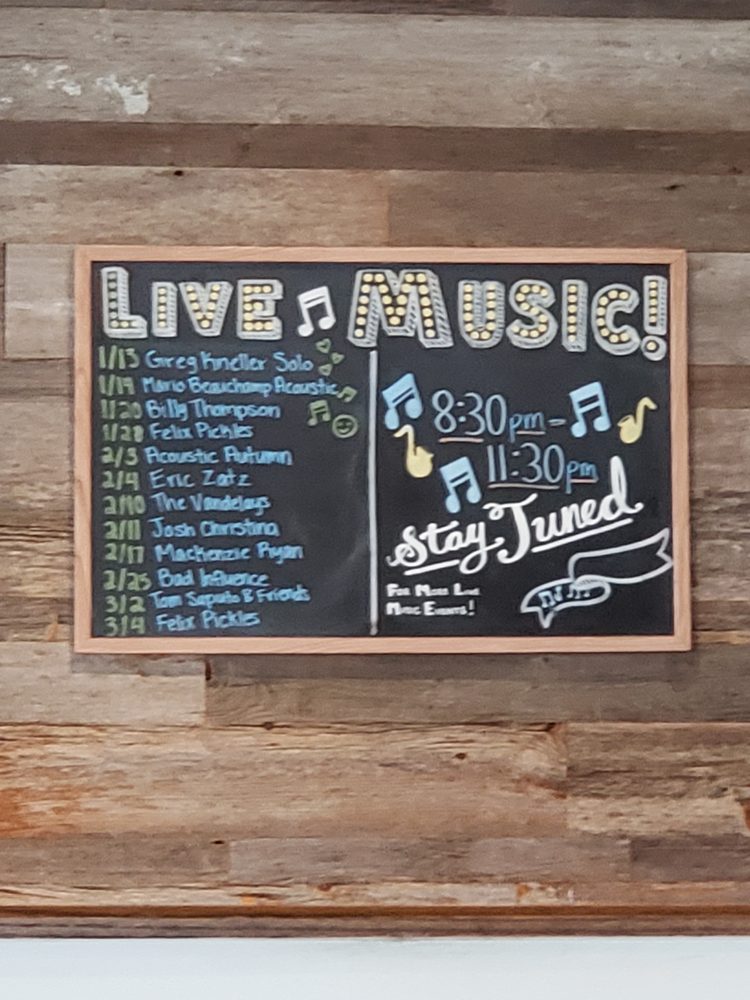 LIVE MUSIC!
1/13 Greg Kneller Solo
1/19 Mario Beauchamp Acoustic
1/20 Billy Thompson
1/28 Felix Pickles
2/3 Acoustic Autumn
2/4 Eric Zatz
2/10 The Vandelays
2/11 Josh Christina
2/17 Mackenzie Ryan
2/25 Bad Influence
3/2 Tom Saputo & Friends
3/4 Felix Pickles
8:30pm-
11:30pm
Stay Tuned
FOR MORE LIVE
MUSIC EVENTS!